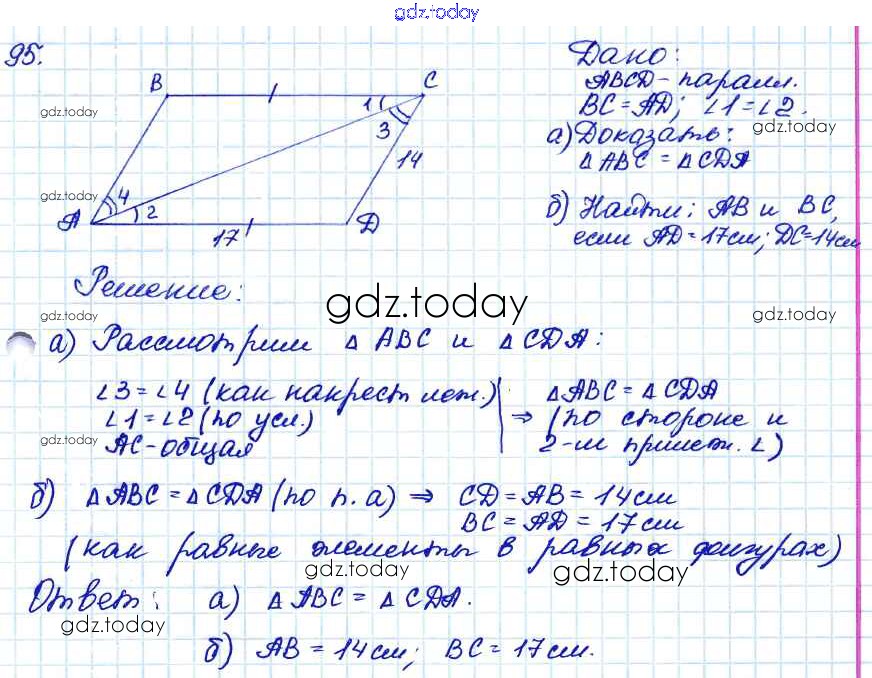 gdz.today
95.
B
C
1
3
14
A
4
2
17
D
Дано:
ABCD - паралл.
BC = AD; ∠1 = ∠2.
а) Доказать:
△ ABC = △ CDA
б) Найти: AB и BC,
если AD = 17см; DC = 14см
gdz.today
gdz.today
gdz.today
Решение:
gdz.today
gdz.today
gdz.today
а) Рассмотрим △ ABC и △ CDA:
∠3 = ∠4 (как накрест леж.)
∠1 = ∠2 (по усл.)
AC - общая
⇒ △ABC = △CDA
(по стороне и
2-м прилеж. ∠)
gdz.today
gdz.today
б) △ ABC = △ CDA (по п. а) ⇒ CD = AB = 14см
BC = AD = 17см
(как равные элементы в равных фигурах)
gdz.today
gdz.today
Ответ: а) △ ABC = △ CDA.
gdz.today
б) AB = 14см; BC = 17см.
gdz.today